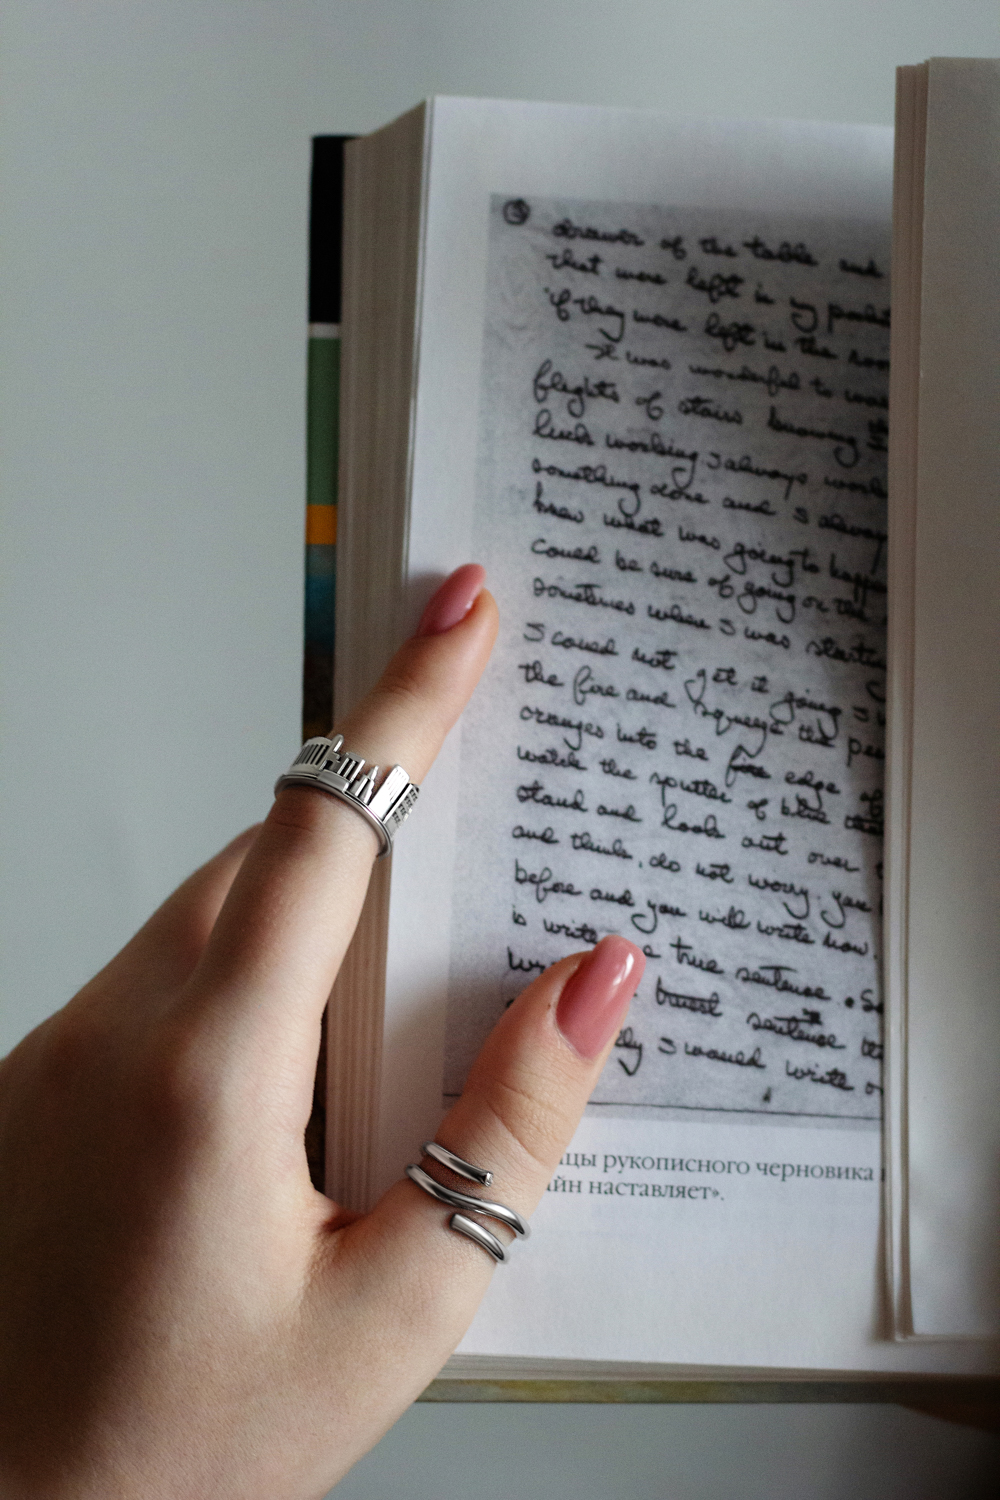 ③ drawer of the table and
that were left in my
if they were left in the
It was wonderful to
flights of stairs knowing
luck working. I always
something done and I always
knew what was going to
could be sure of going on the
sometimes when I was
I could not get it going I
the fire and squeeze the
oranges into the fire edge of
watch the sputter of blue
stand and look out over
and think, do not worry. you
before and you will write now.
is write true sentence. So
sentence
I would write
цы рукописного черновика
йн наставляет».